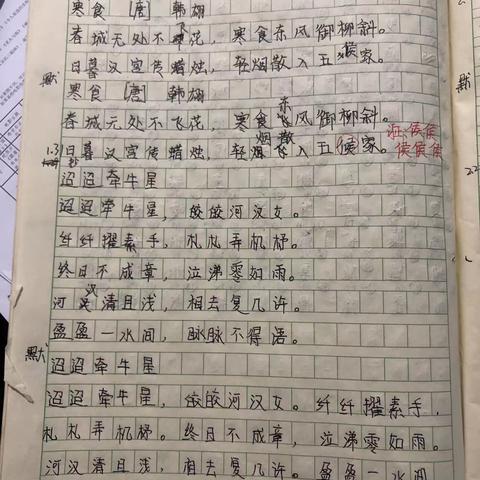 寒食 [唐] 韩翃
春城无处不飞花，寒食东风御柳斜。
日暮汉宫传蜡烛，轻烟散入五侯家。
默
寒食 [唐] 韩翃
春城无处不飞花，寒食东风御柳斜。
1.3 日暮汉宫传蜡烛，轻烟散入五侯家。
侯侯侯
迢迢牵牛星
迢迢牵牛星，皎皎河汉女。
纤纤擢素手，札札弄机杼。
终日不成章，泣涕零如雨。
河汉清且浅，相去复几许。
盈盈一水间，脉脉不得语。
默
迢迢牵牛星
迢迢牵牛星，皎皎河汉女。纤纤擢素手，
札札弄机杼。终日不成章，泣涕零如雨。
河汉清且浅，相去复几许。盈盈一水间
默
2.2